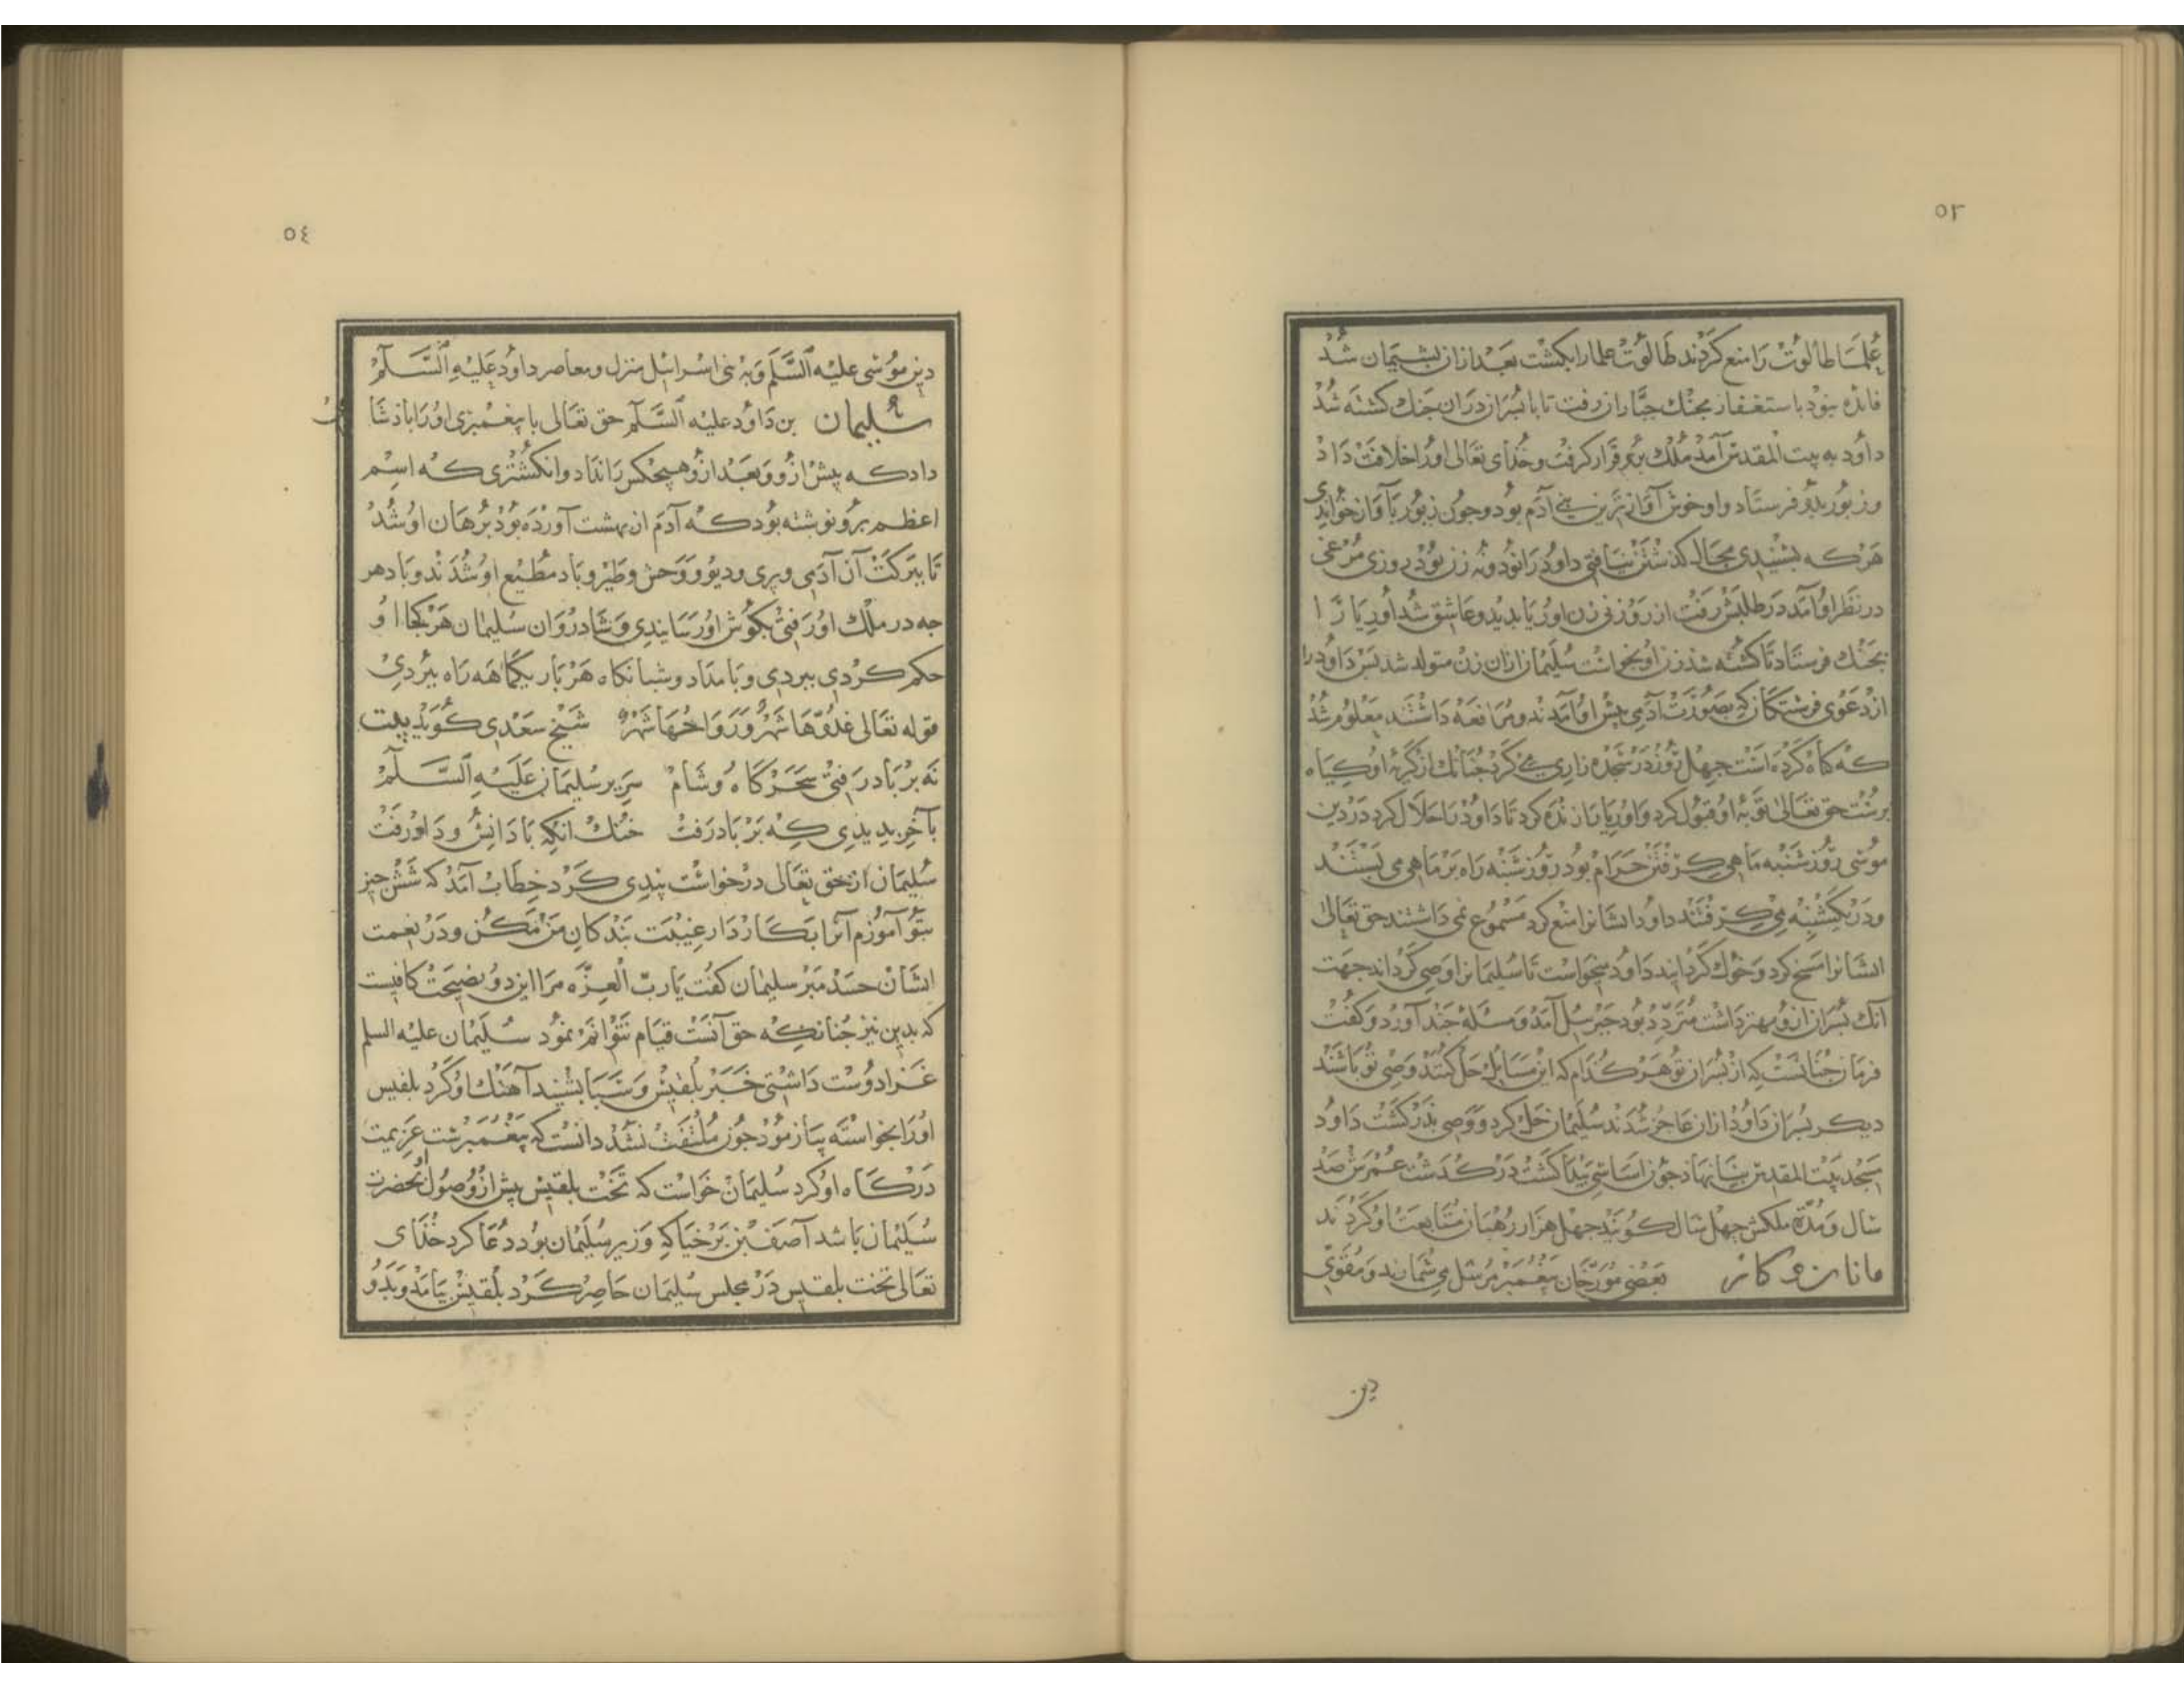 ٥٣
علما طالوت را منع کردند طالوت علما را بکشت بعد ازان بشیمان شد
فائده نبود باستغفار بجنك جباران رفت تا با بسران دران جنك کشته شد
داود به بیت المقدس آمد ملك برو قرار کرفت و خدای تعالی اورا خلافت داد
و زبور بدو فرستاد و او خوش آوازترین بنی آدم بود و جون زبور بآواز خواندی
هرکه بشنیدی مجال کذشتن نیافتی داود را نود و نه زن بود روزی مرغی
در نظر او آمد در طلبش رفت از روزنی زن اوریا بدید و عاشق شد اوریا را
بجنك فرستاد تا کشته شد زن او بخواست سلیمان ازان زن متولد شد بس داود را
از دعوی فرشتکان که بصورت آدمی بیش او آمدند و مرافعه داشتند معلوم شد
که کناه کرده است جهل روز در سجده زاری می کرد جنانك از کریۀ او کیاه
برست حق تعالی توبۀ او قبول کرد و اوریا را زنده کرد تا داود را حلال کرد در دین
موسی روز شنبه ماهی کرفتن حرام بود روز شنبه راه بر ماهی می بستند
و در یکشنبه می کرفتند داود ایشانرا منع کرد مسموع نمی داشتند حق تعالی
ایشانرا مسخ کرد و خوك کردانید داود میخواست تا سلیمانرا وصی کرداند جهت
آنك بسران ازو مهتر داشت متردد بود جبرئیل آمد و مسئله جند آورد و کفت
فرمان جنانست که از بسران تو هر کدام که این مسایل حل کنند وصی تو باشند
دیکر بسران داود ازان عاجز شدند سلیمان حل کرد و وصی بدر کشت داود
مسجد بیت المقدس بنیاد نهاد جون اساسی بیدا کشت در کذشت عمرش صد
سال و مدة ملکش جهل سال کویند جهل هزار رهبان متابعت او کردند
بعضی مورخان بیغمبر مرسل می شمارند و مقوی
دین
٥٤
دین موسی علیه السلم و به بنی اسرائیل منزل و معاصر داود علیه السلم
سلیمان بن داود علیه السلم حق تعالی با بیغمبری اورا باذشا
داد که بیش ازو و بعد ازو هیجکس را نداد و انکشتری که اسم
اعظم برو نوشته بود که آدم از بهشت آورده بود برهان او شد
تا ببرکت آن آدمی و بری و دیو و وحش و طیر و باد مطیع او شدند و باد هر
جه در ملك او رفتی بکوش او رسانیدی و شادروان سلیمان هر کجا او
حکم کردی ببردی و بامداد و شبانکاه هر بار یکماهه راه ببردی
قوله تعالی غدوها شهر ورواحها شهر شیخ سعدی کوید بیت
نه بر باد رفتی سحرکاه و شام سریر سلیمان علیه السلم
بآخر بدیدی که بر باد رفت خنك انکه با دانش و داد رفت
سلیمان از حق تعالی درخواست بندی کرد خطاب آمد که شش جیز
بتو آموزم آنرا بکار دار غیبت بندکان من مکن و در نعمت
ایشان حسد مبر سلیمان کفت یا رب العزه مرا این دو نصیحت کافیست
که بدین نیز جنانکه حق آنست قیام نتوانم نمود سلیمان علیه السلم
غزا دوست داشتی خبر بلقیس و سبا بشنید آهنك او کرد بلقیس
اورا بخواسته بیازمود جون ملتفت نشد دانست که بیغمبرست عزیمت
درکاه او کرد سلیمان خواست که تخت بلقیس بیش از وصول او بحضرت
سلیمان باشد آصف بن برخیا که وزیر سلیمان بود دعا کرد خذای
تعالی تخت بلقیس در مجلس سلیمان حاضر کرد بلقیس بیامد و بدو